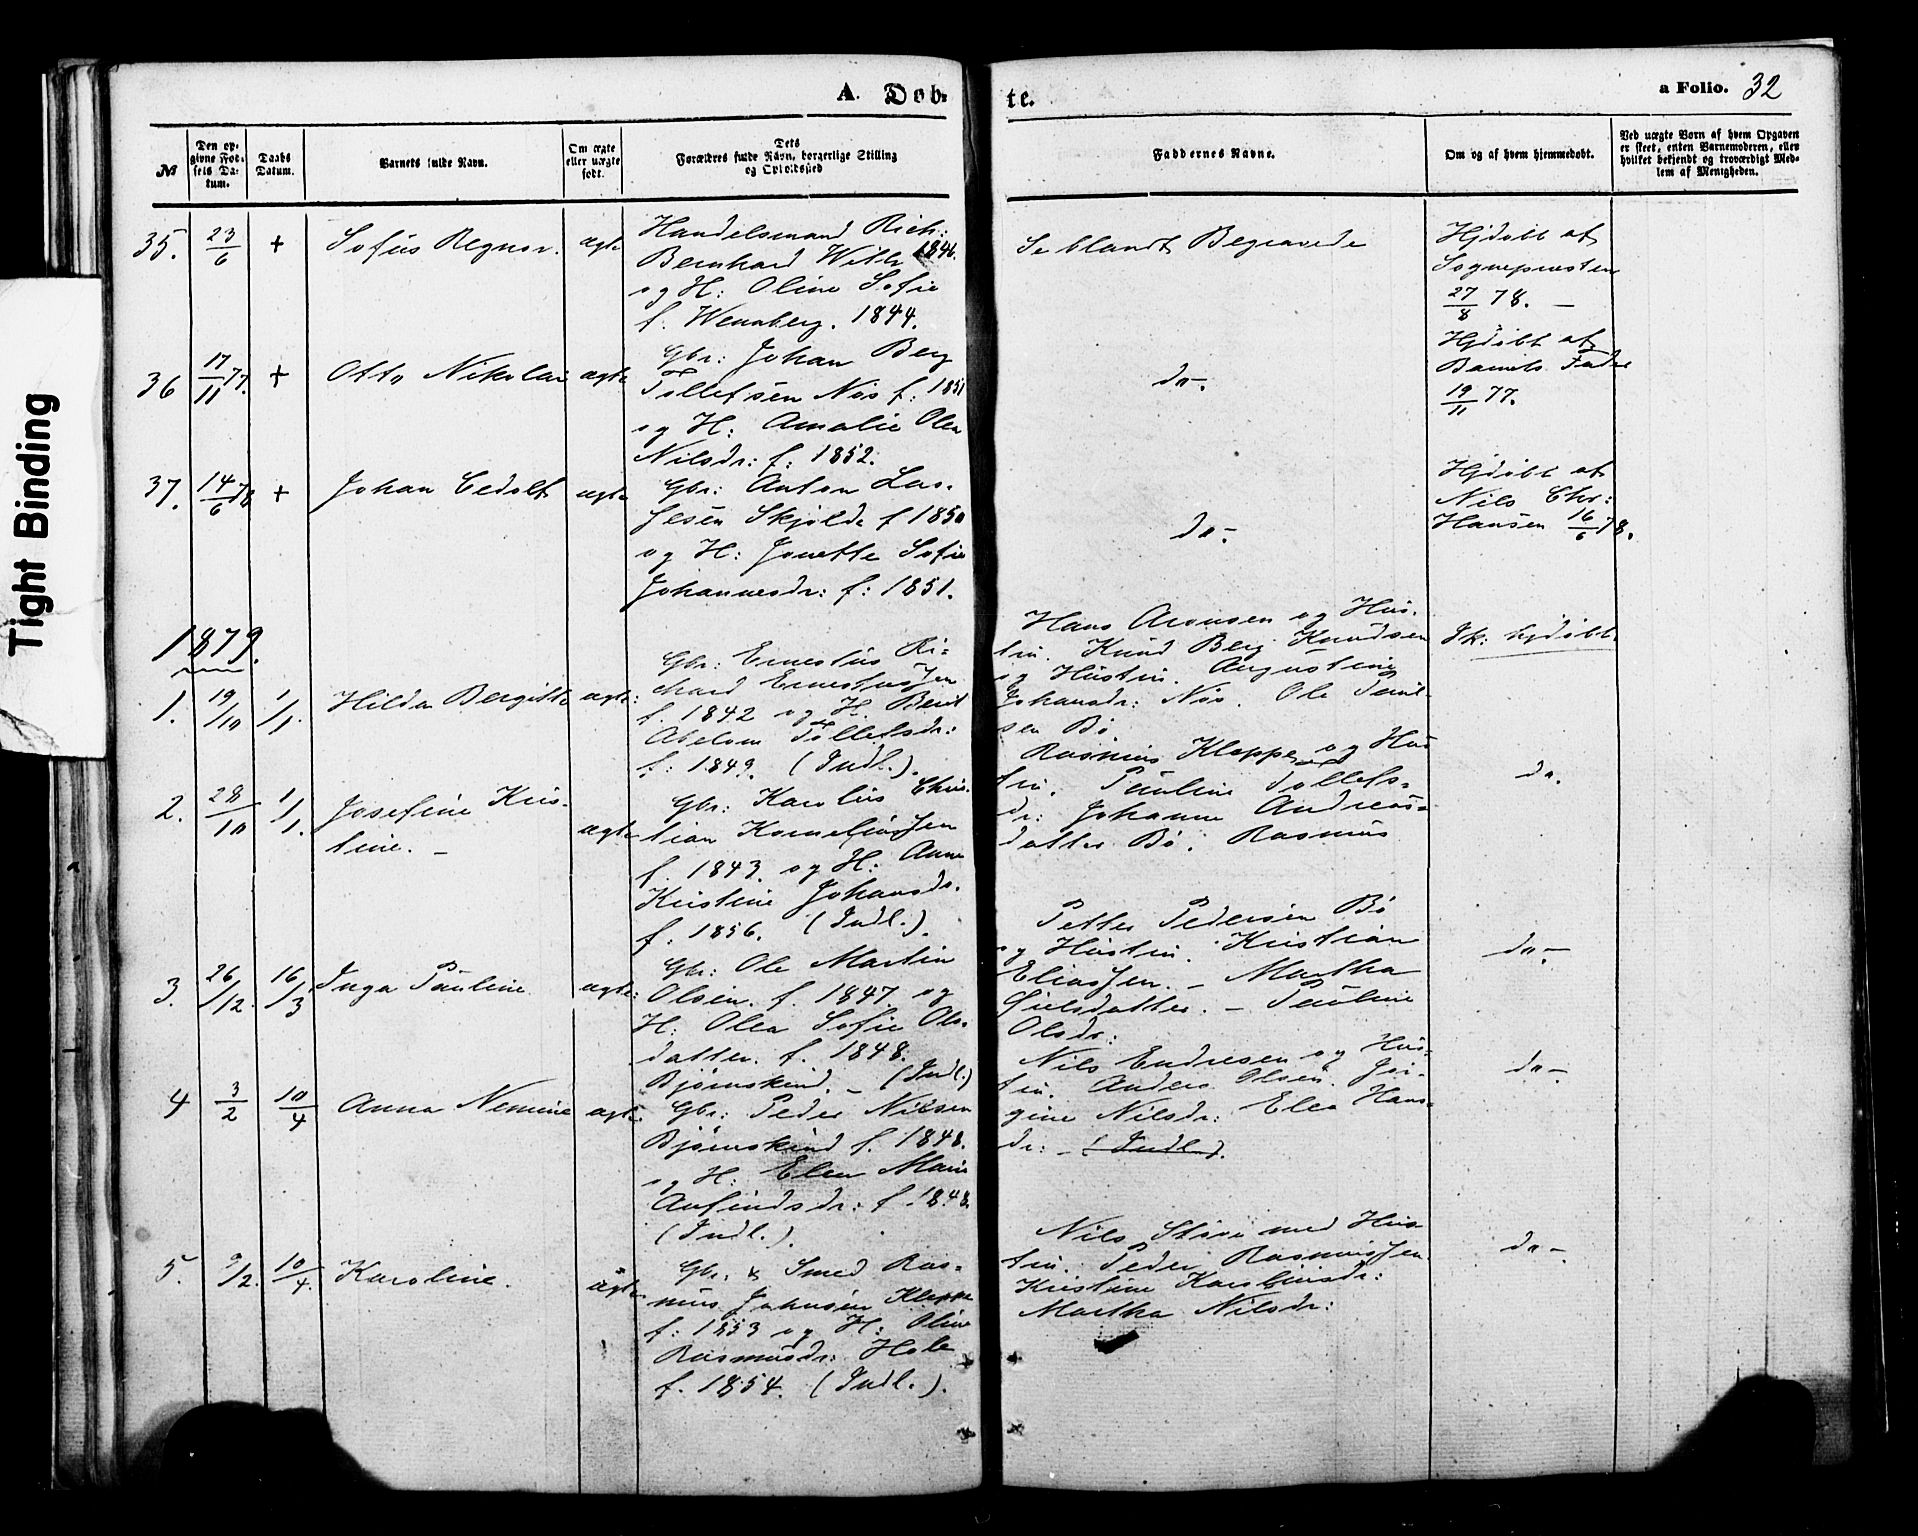 A. Døb-
te.
a Folio. 32
Tight Binding
№
Den op-
givne Fød-
sels Da-
tum.
Daabs
Datum.
Barnets fulde Navn.
Om ægte
eller uægte
født.
Dets
Forældres fulde Navn, borgerlige Stilling
og Opholdssted
Faddernes Navne.
Om og af hvem hjemmedøbt.
Ved uægte Børn af hvem Opgaven
er skeet, enten Barnemoderen, eller
hvilket bekjendt og troværdigt Med-
lem af Menigheden.
35. 23/6 + Sofus Regnor. ægte
Handelsmand Rich:
Bernhard With 1846.
og H: Oline Sofie
f. Wennberg. 1844.
Se blandt Begravede
Hjdøbt af
Sognepresten
27/8 78. —
36 17/11 77. + Otto Nikolai ægte
Gbr: Johan Berg
Tollefsen Nøs f: 1851
og H: Amalie Olea
Nilsdr: f: 1852.
do-.
Hjdøbt af
Barnets Fader
19/11 77.
37. 14/6 78 + Johan Cedolf ægte
Gbr: Anton Las-
sesen Skjolde f 1850
og H: Jonette Sofie
Johannesdr: f: 1851.
do-.
Hjdøbt af
Nils Chr:
Hansen 16/6 78.
1879.
1. 19/10 1/1. Hilda Bergitte ægte:
Gbr: Ernestus Ri-
chard Ernestussen
f. 1842 og H. Berit
Abelone Tollefsdr:
f: 1849. (Indl.).
Hans Aronsen og Hus-
tru. Knud Berg Knudsen
og Hustru. Augustine
Johansdr: Nøs. Ole
sen Bø.
Ik: hjdøbt.
2. 28/10 1/1. Josefine Kris-
tine. — ægte
Gbr: Karolius Chris-
tian Korneliussen
f. 1843. og H: Anne
Kristine Johansdr.
f: 1856. (Indl.).
Rasmus Kleppe og Hus
tru. Pauline Tollefs-
dr: Johanne Andreas-
datter Bø. Rasmus
do.
3. 26/12. 16/3 Inga Pauline ægte:
Gbr: Ole Martin
Olsen. f. 1847. og
H: Olea Sofie Ols-
datter. f. 1848.
Bjørnskind. — (Indl.)
Petter Pedersen Bø
og Hustru. Kristian
Eliassen. — Martha
datter. — Pauline
Olsdr:
do-.
4 3/2 10/4 Anna Nemine ægte
Gbr: Peder Nilsen
Bjørnskind f. 1848.
og H: Elen Marie
Anfindsdr: f. 1848.
(Indl.).
Nils Endresen og Hus-
tru. Anders Olsen. Jør-
gine Nilsdr: Elea Hans-
dr: — (Indl.).
do-.
5. 9/2. 10/4. Karoline. ægte
Gbr. & Smed Ras-
mus Johnsen Kleppe
f: 1853 og H: Oline
Rasmusdr: Hole
f. 1854. (Indl.).
Nils Skive med Hus
tru. Peder Rasmussen
Kristine
Martha Nilsdr:
do-.